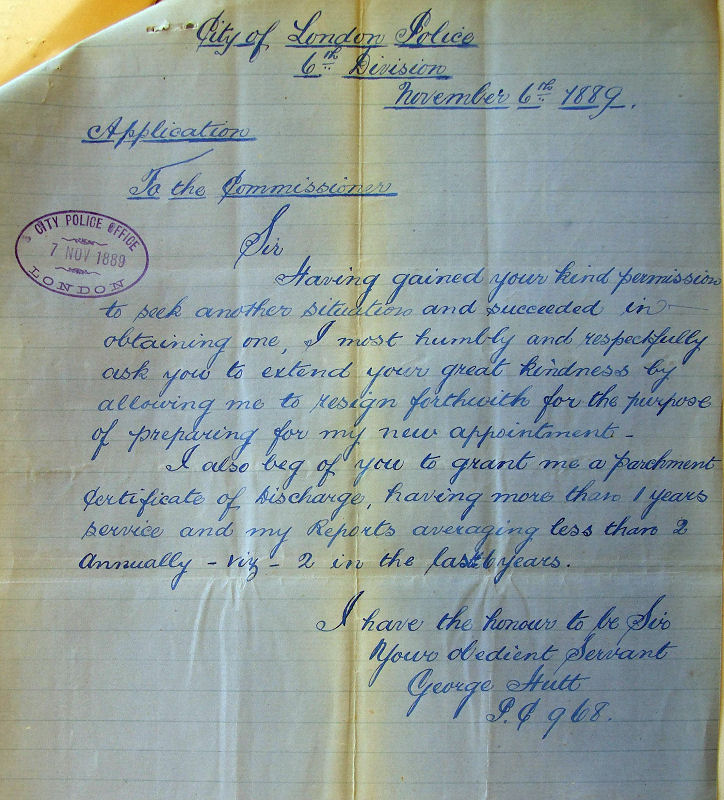 City of London Police
6th Division
November 6th 1889.
Application
To the Commissioner
CITY POLICE OFFICE
7 NOV 1889
LONDON
Sir
Having gained your kind permission
to seek another situation and succeeded in
obtaining one, I most humbly and respectfully
ask you to extend your great kindness by
allowing me to resign forthwith for the purpose
of preparing for my new appointment -
I also beg of you to grant me a parchment
Certificate of Discharge, having more than years
service and my Reports averaging less than 2
Annually - viz - 2 in the last 6 years.
I have the honour to be Sir
Your obedient Servant
George Hutt
P.C 968.